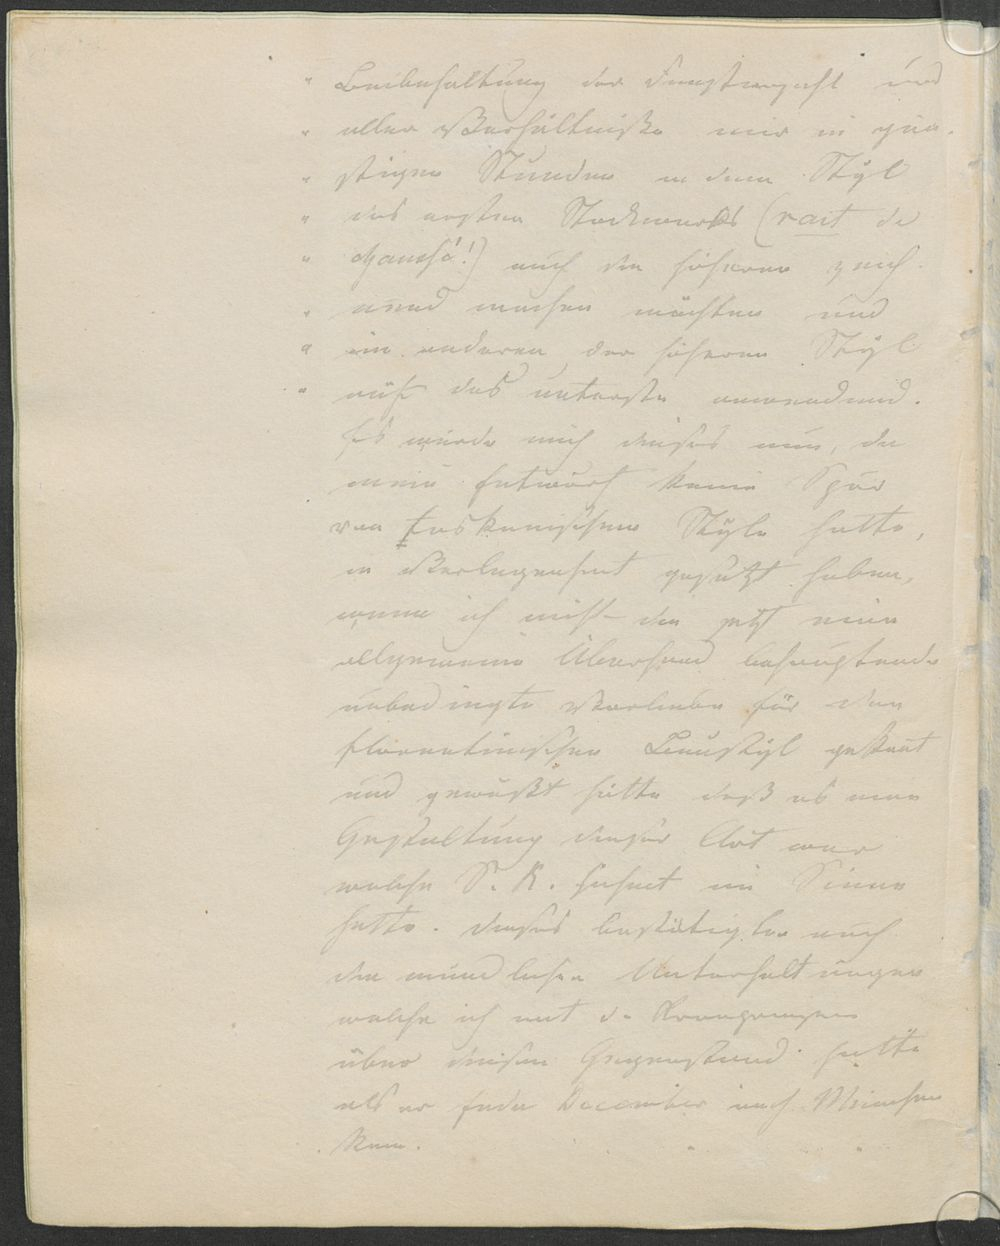 " Beibehaltung der Fensterzahl und
" aller Verhältniße mir in gün-
" stigen Stunden in dem Styl
" des ersten Stockwerks (rait de
" chaussé!!) auch die höheren zeich-
" nend machen möchten und
" in anderen den höheren Styl
" auf das unterste anwendend.
Es würde mich dieses nun, da
mein Entwurf keine Spur
von toskanischem Style hatte,
in Verlegenheit gesetzt haben,
wenn ich nicht die jetzt eine
allgemeine Oberhand behauptende
unbedingte Vorliebe für den
florentinischen Baustyl gekannt
und gewußt hätte daß es eine
Gestaltung dieser Art war
welche S. K. Hoheit im Sinne
hatte. Dieses bestätigten auch
die mündlichen Unterhaltungen
welche ich mit d. Kronprinzen
über diesen Gegenstand hatte
als er Ende December nach München
kam.